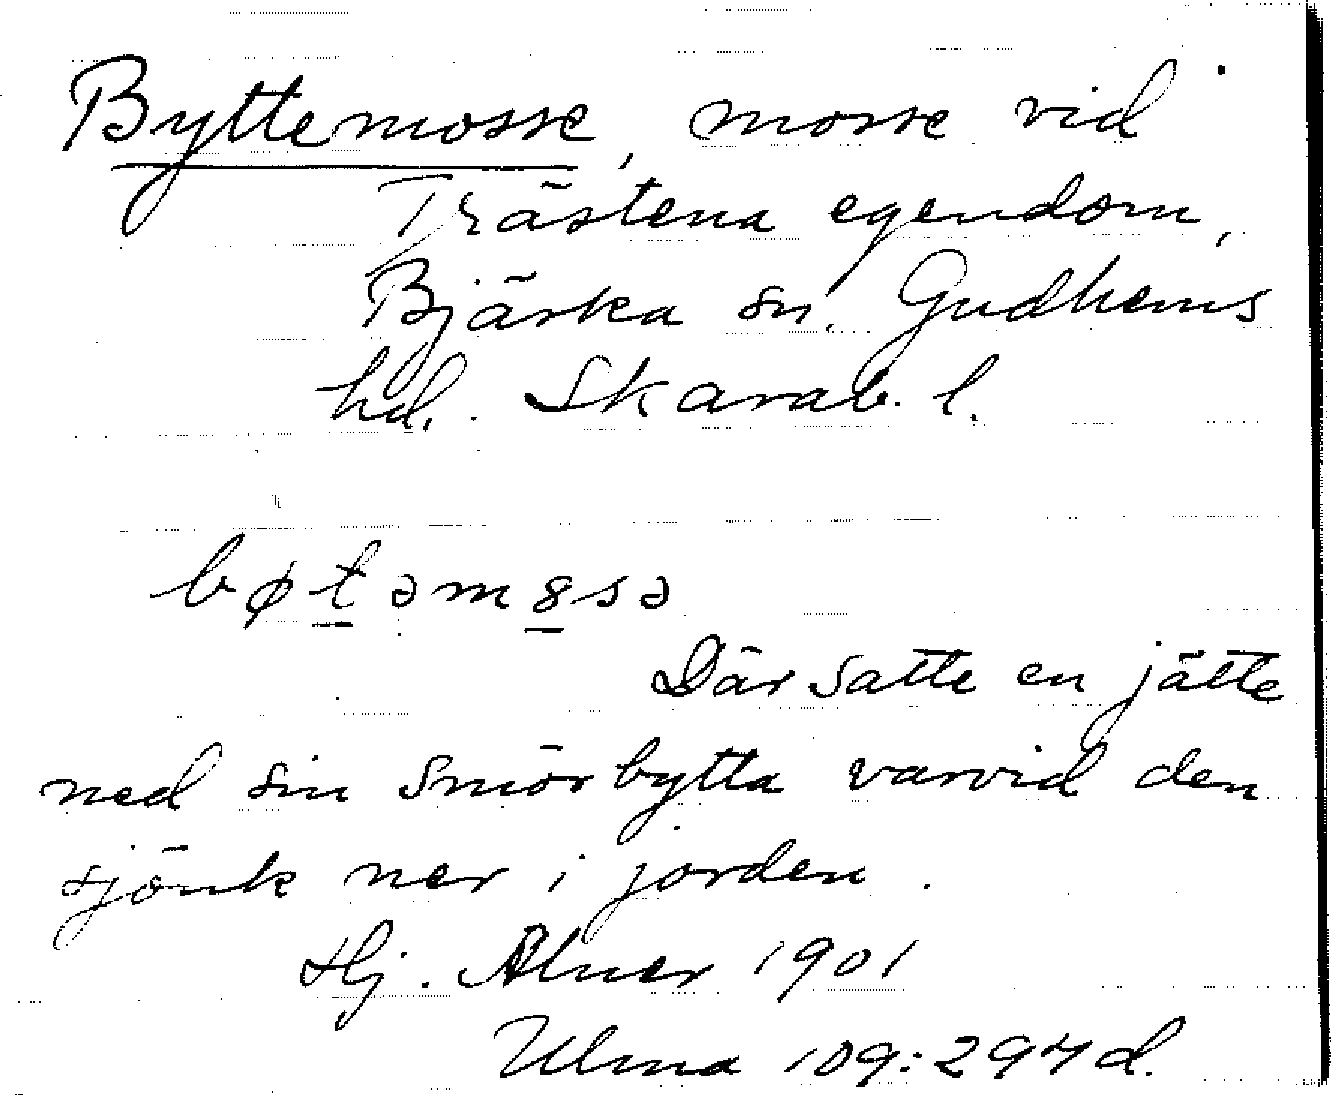 Byttemosse, mosse vid
Trästena egendom,
Bjärka sn. Gudhems
hd. Skarab. l.
bøtəm8sə
Där satte en jätte
ned sin smörbytta varvid den
sjönk ner i jorden.
Hj. 1901
Ulma 109:297d.